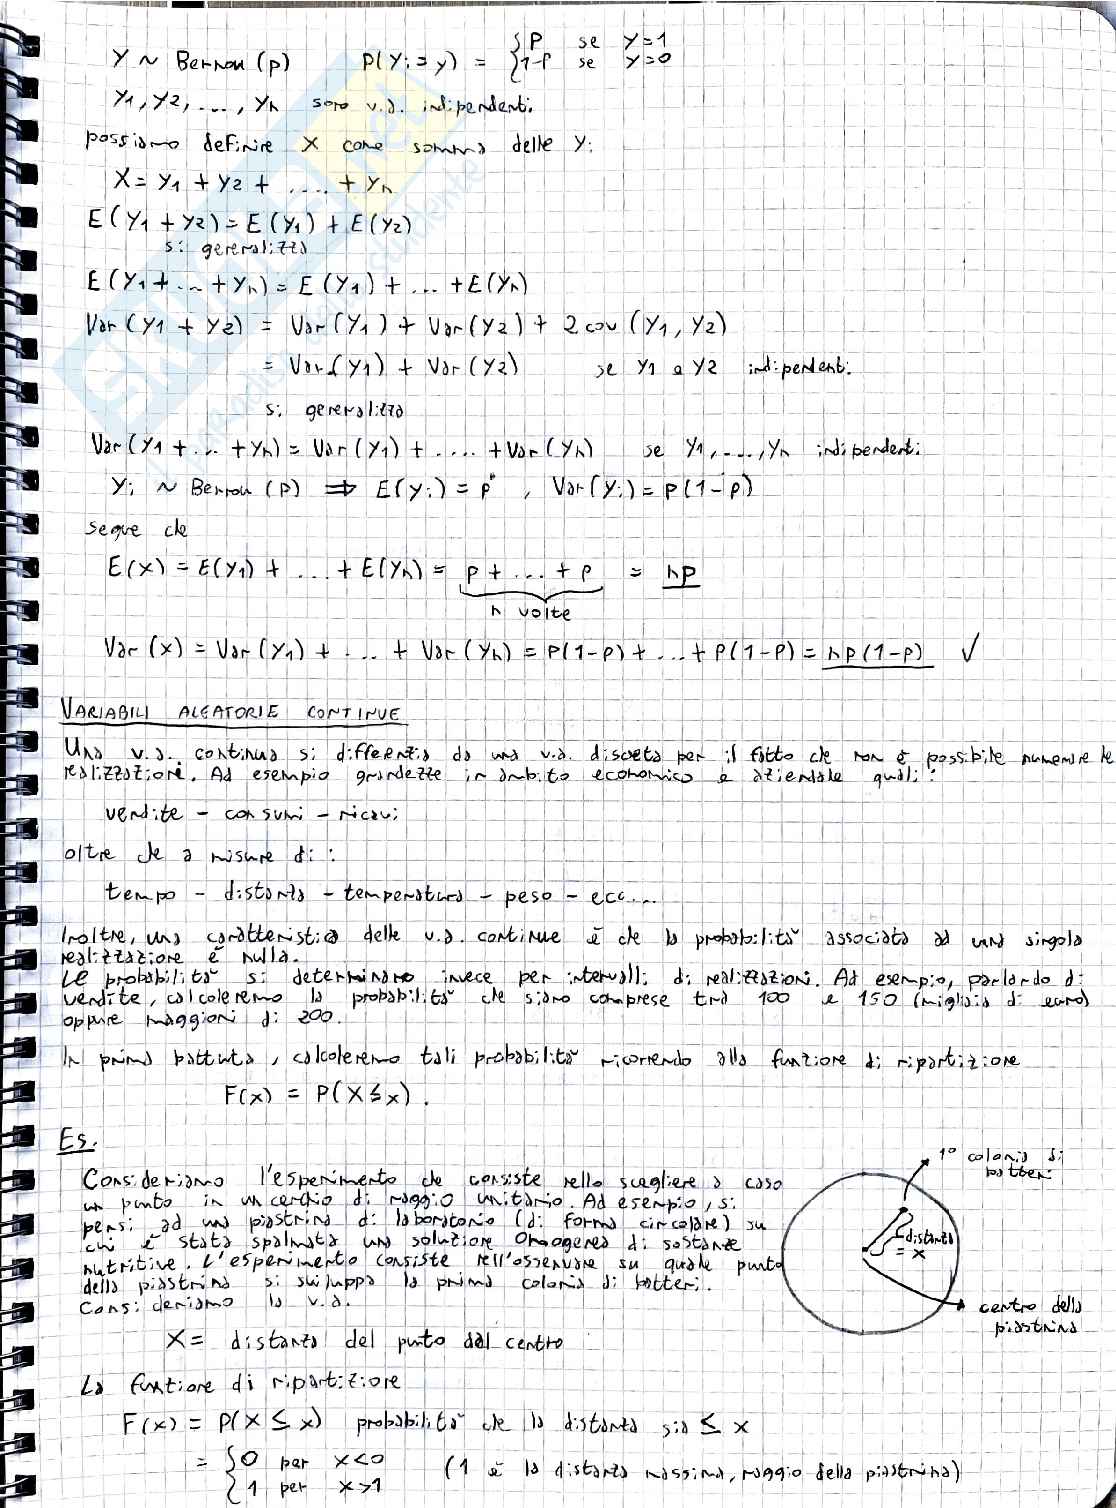 Y ~ Bernou (p) P(Yi = y) = { p se y=1
{ 1-p se y=0
Y1, Y2, ..., Yn sono v.a. indipendenti
possiamo definire X come somma delle Yi
X = Y1 + Y2 + .... + Yn
E(Y1 + Y2) = E(Y1) + E(Y2)
si generalizza
E(Y1 + ... + Yn) = E(Y1) + ... + E(Yn)
Var(Y1 + Y2) = Var(Y1) + Var(Y2) + 2 cov (Y1, Y2)
= Var(Y1) + Var(Y2) se Y1 e Y2 indipendenti
si generalizza
Var(Y1 + ... + Yn) = Var(Y1) + .... + Var(Yn) se Y1, ..., Yn indipendenti
Yi ~ Bernou (p) ⟹ E(Yi) = p , Var(Yi) = p(1-p)
segue che
E(X) = E(Y1) + ... + E(Yn) = p + ... + p = np
n volte
Var(X) = Var(Y1) + ... + Var(Yn) = p(1-p) + ... + p(1-p) = np(1-p) ✓
VARIABILI ALEATORIE CONTINUE
Una v.a. continua si differenzia da una v.a. discreta per il fatto che non è possibile numerare le
realizzazione. Ad esempio grandezze in ambito economico e aziendale quali:
vendite - consumi - ricavi
oltre che a misure di:
tempo - distanza - temperatura - peso - ecc...
Inoltre, una caratteristica delle v.a. continue è che la probabilità associata ad una singola
realizzazione è nulla.
Le probabilità si determinano invece per intervalli di realizzazioni. Ad esempio, parlando di
vendite, calcoleremo la probabilità che siano comprese tra 100 e 150 (migliaia di euro)
oppure maggiori di 200.
In prima battuta, calcoleremo tali probabilità ricorrendo alla funzione di ripartizione
F(x) = P(X ≤ x).
Es.
Consideriamo l'esperimento che consiste nello scegliere a caso
un punto in un cerchio di raggio unitario. Ad esempio, si
pensi ad una piastrina di laboratorio (di forma circolare) su
cui è stata spalmata una soluzione omogenea di sostanze
nutritive. L'esperimento consiste nell'osservare su quale punto
della piastrina si sviluppa la prima colonia di batteri.
Consideriamo la v.a.
1° colonia di
batteri
distanza
= x
centro della
piastrina
X = distanza del punto dal centro
La funzione di ripartizione
F(x) = P(X ≤ x) probabilità che la distanza sia ≤ x
= { 0 per x<0 (1 è la distanza massima, raggio della piastrina)
{ 1 per x>1